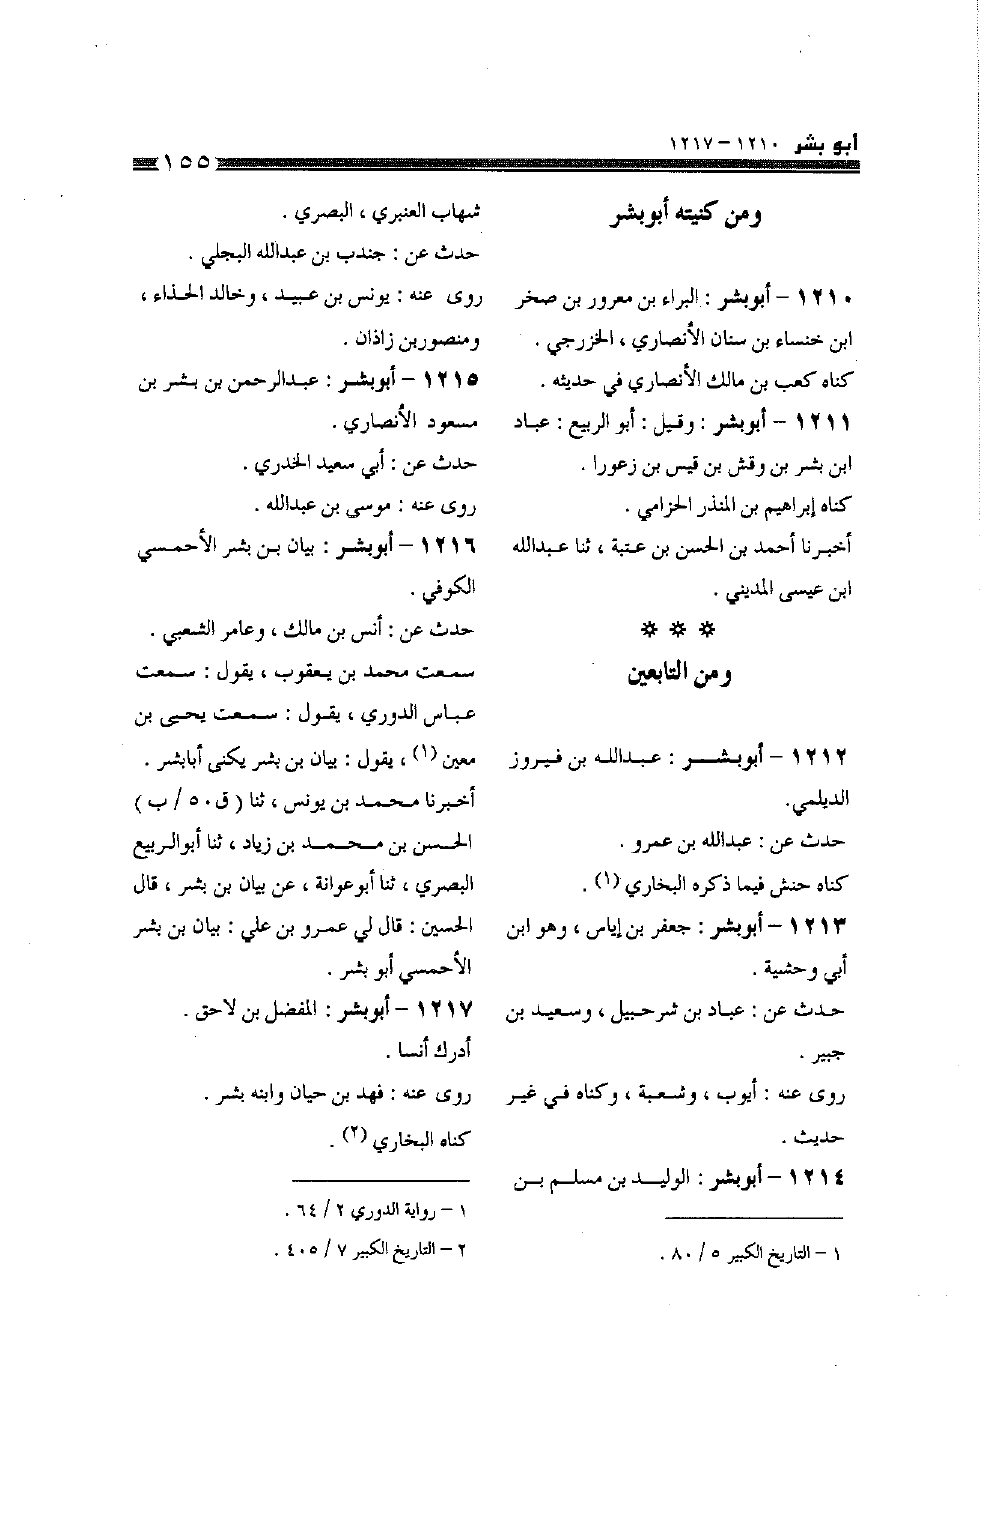 أبو بشر ١٢١٠-١٢١٧
١٥٥
ومن كنيته أبوبشر
١٢١٠ - أبوبشر : البراء بن معرور بن صخر
ابن خنساء بن سنان الأنصاري ، الخزرجي .
كناه كعب بن مالك الأنصاري في حديثه .
١٢١١ - أبوبشر : وقيل : أبو الربيع : عباد
ابن بشر بن وقش بن قيس بن زعورا .
كناه إبراهيم بن المنذر الحزامي .
أخبرنا أحمد بن الحسن بن عتبة ، ثنا عبدالله
ابن عيسى المديني .
* * *
ومن التابعين
١٢١٢ - أبوبشر : عبدالله بن فيروز
الديلمي.
حدث عن : عبدالله بن عمرو .
كناه حنش فيما ذكره البخاري (١) .
١٢١٣ - أبوبشر : جعفر بن إياس ، وهو ابن
أبي وحشية .
حدث عن : عباد بن شرحبيل ، وسعيد بن
جبير .
روى عنه : أيوب ، وشعبة ، وكناه في غير
حديث .
١٢١٤ - أبوبشر : الوليد بن مسلم بن
١ - التاريخ الكبير ٥ / ٨٠ .
شهاب العنبري ، البصري .
حدث عن : جندب بن عبدالله البجلي .
روى عنه : يونس بن عبيد ، وخالد الحذاء ،
ومنصوربن زاذان .
١٢١٥ - أبوبشر : عبدالرحمن بن بشر بن
مسعود الأنصاري .
حدث عن : أبي سعيد الخدري .
روى عنه : موسى بن عبدالله .
١٢١٦ - أبوبشر : بيان بن بشر الأحمسي
الكوفي .
حدث عن : أنس بن مالك ، وعامر الشعبي .
سمعت محمد بن يعقوب ، يقول : سمعت
عباس الدوري ، يقول : سمعت يحيى بن
معين (١) ، يقول : بيان بن بشر يكنى أبابشر .
أخبرنا محمد بن يونس ، ثنا ( ق٥٠ / ب )
الحسن بن محمد بن زياد ، ثنا أبوالربيع
البصري ، ثنا أبوعوانة ، عن بيان بن بشر ، قال
الحسين : قال لي عمرو بن علي : بيان بن بشر
الأحمسي أبو بشر .
١٢١٧ - أبوبشر : المفضل بن لاحق .
أدرك أنسا .
روى عنه : فهد بن حيان وابنه بشر .
كناه البخاري (٢) .
١ - رواية الدوري ٢ / ٦٤ .
٢ - التاريخ الكبير ٧ / ٤٠٥ .